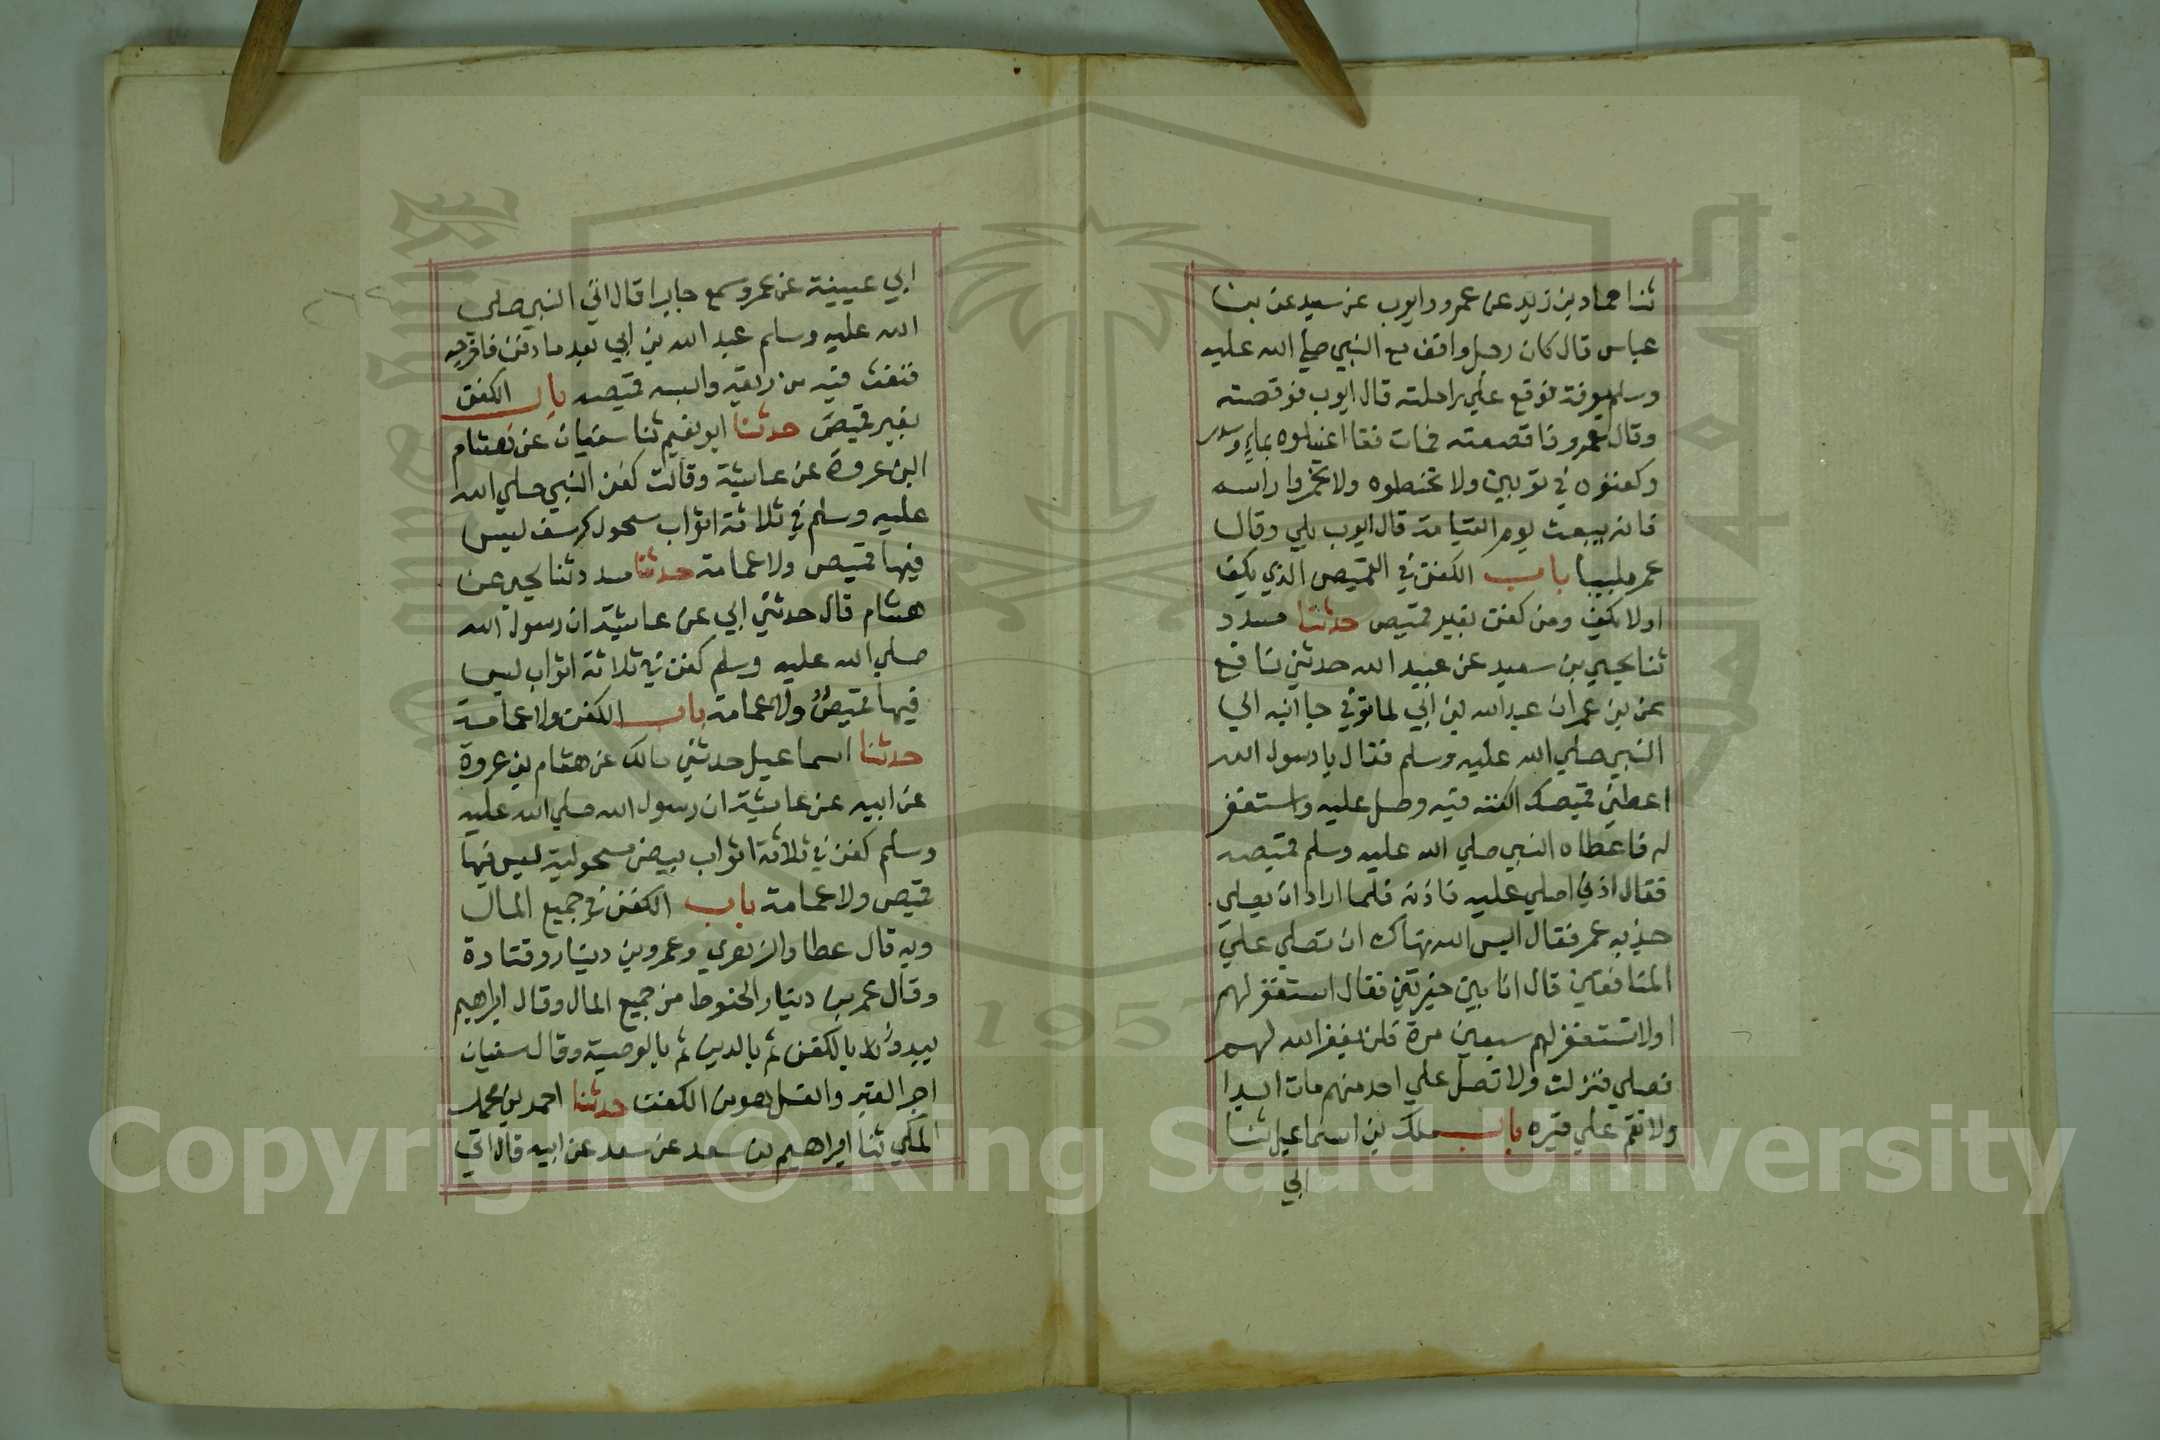 ثنا حماد بن زيد عن عمرو وايوب عن سعيد عن بن
عباس قال كان رجل واقف مع النبي صلي الله عليه
وسلم بعرفة فوقع علي راحلته قال ايوب فوقصته
وقال عمرو فاقصعته فمات فقا اغسلوه بماء وسدر
وكفنوه في ثوبين ولا تحنطوه ولا تخمروا راسه
فانه يبعث يوم القيامة قال ايوب يلبي وقال
عمر ملبيا باب الكفن في القميص الذي يكف
اولا يكف ومن كفن بغير قميص حدثنا مسدد
ثنا يحيي بن سعيد عن عبيد الله حدثني نافع
عن بن عمر ان عبد الله بن ابي لما توفي جا ابنه الي
النبي صلي الله عليه وسلم فقال يا رسول الله
اعطني قميصك اكفنه فيه وصل عليه واستغفر
له فاعطاه النبي صلي الله عليه وسلم قميصه
فقال اذني اصلي عليه فاذنه فلما اراد ان يصلي
جذبه عمر فقال اليس الله نهاك ان تصلي علي
المنافقين قال انا بين خيرتين فقال استغفر لهم
اولا تستغفر لهم سبعين مرة فلن يغفر الله لهم
فصلي فنزلت ولا تصل علي احد منهم مات ابدا
ولا تقم علي قبره باب ملك بن اسماعيل ثنا
ابي
ابي عيينة عن عمرو سمع جابرا قال اتي النبي صلي
الله عليه وسلم عبد الله بن ابي بعد ما دفن فاخرجه
فنفث فيه من ريقه والبسه قميصه باب الكفن
بغير قميص حدثنا ابو نعيم ثنا سفيان عن هشام
ابن عروة عن عايشة وقالت كفن النبي صلي الله
عليه وسلم في ثلاثة اثواب سحول كرسف ليس
فيها قميص ولا عمامة حدثنا مسدد ثنا يحيي عن
هشام قال حدثني ابي عن عايشة ان رسول الله
صلي الله عليه وسلم كفن في ثلاثة اثواب ليس
فيها قميص ولا عمامة باب الكفن ولا عمامة
حدثنا اسماعيل حدثني مالك عن هشام بن عروة
عن ابيه عن عايشة ان رسول الله صلي الله عليه
وسلم كفن في ثلاثة اثواب بيض سحولية ليس فيها
قميص ولا عمامة باب الكفن في جميع المال
وبه قال عطا والزهري وعمرو بن دينار وقتادة
وقال عمر بن دينار الحنوط من جميع المال وقال ابراهيم
يبدؤ بالكفن ثم بالدين ثم بالوصية وقال سفيان
اجر القبر والغسل هو من الكفن حدثنا احمد بن محمد
المكي ثنا ابراهيم بن سعد عن سعد عن ابيه قال اتي
1957
Copyright © King Saud University